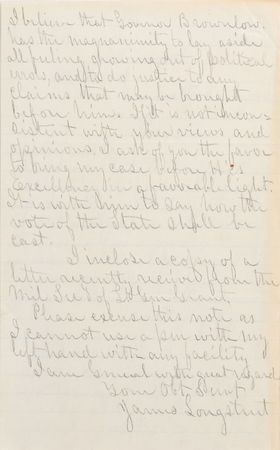 I believe that Govenor Brownlow.
has the magnanimity to lay aside
all feeling growing out of political
and to do justice to any
claims that may be brought
before him. If it is not incon=
sistent with your views and
opinions, I ask of you the favor
to bring my case before His
Excellency in a favorable light.
It is with him to say how the
vote of the State shall be
cast.
I inclose a copy of a
letter recently received from the
Mil Sec'd of Lt Gen Grant
Please excuse this note as
I cannot use a pen with my
left hand with any facility
I am Gineral with great regard
Your Obt Servt
James Longstreet